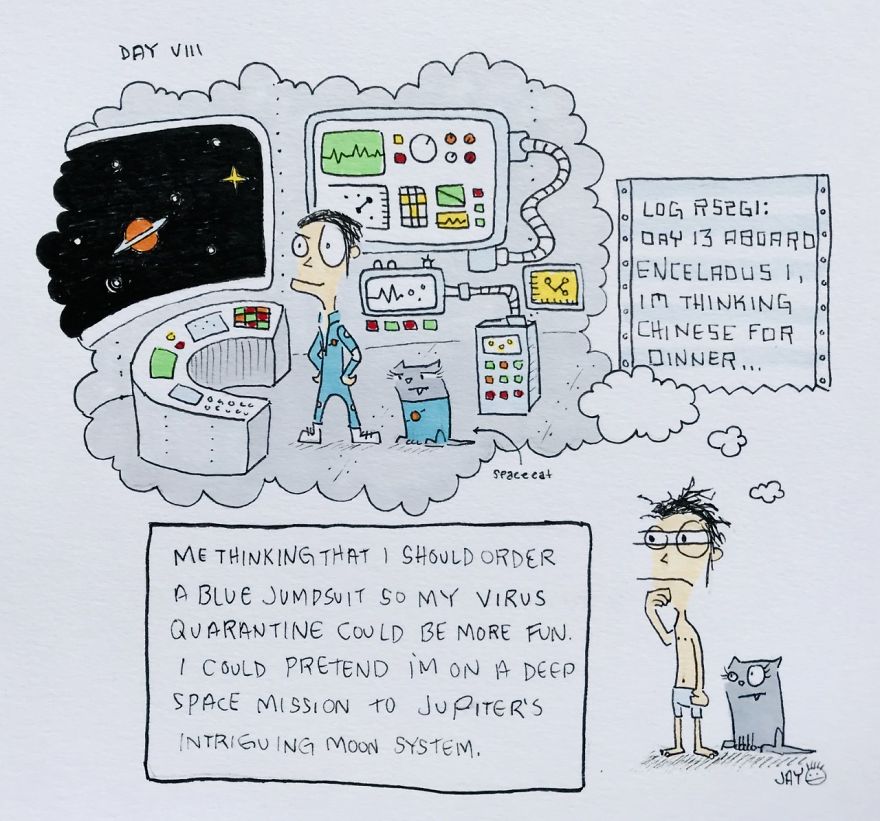 DAY VIII
LOG R52G1:
DAY 13 ABOARD
ENCELADUS 1,
IM THINKING
CHINESE FOR
DINNER...
spacecat
ME THINKING THAT I SHOULD ORDER
A BLUE JUMPSUIT SO MY VIRUS
QUARANTINE COULD BE MORE FUN.
I COULD PRETEND I'M ON A DEEP
SPACE MISSION TO JUPITER'S
INTRIGUING MOON SYSTEM.
JAY